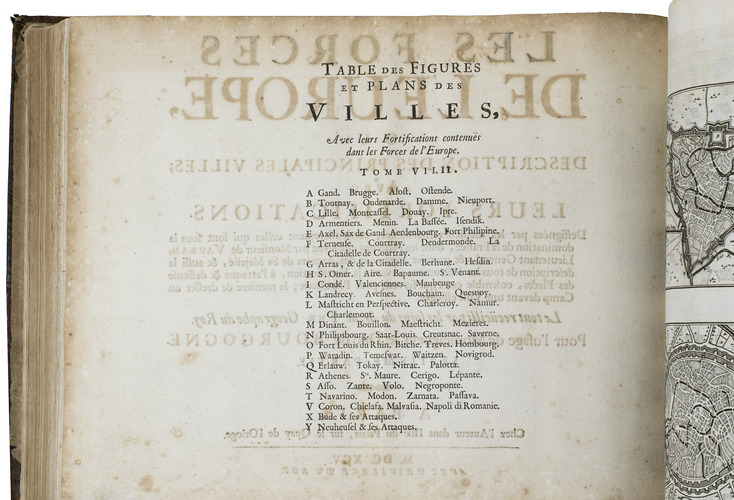 TABLE DES FIGURES
ET PLANS DES
VILLES,
Avec leurs Fortifications contenuës
dans les Forces de l'Europe.
TOME VII.II.
A Gand. Brugge. Alost. Ostende.
B Tournay. Oudenarde. Damme. Nieuport.
C Lille. Montcassel. Douay. Ipre.
D Armentiers. Menin. La Bassée. Isendik.
E Axel. Sax de Gand. Aerdenbourg. Fort Philipine.
F Terneuse. Courtray. Dendermonde. La
Citadelle de Courtray.
G Arras, & de la Citadelle. Berhune. Hesdin.
H S. Omer. Aire. Bapaume. S. Venant.
I Condé. Valenciennes. Maubeuge
K Landrecy. Avesnes. Bouchain. Quesnoy.
L Mastricht en Perspective. Charleroy. Namur.
Charlemont.
M Dinant. Bouillon. Maestricht. Mezieres.
N Philipsbourg. Saar-Louis. Creutsnac. Saverne.
O Fort Louis du Rhin. Bitche. Treves. Hombourg.
P Waradin. Temeswar. Waitzen. Novigrod.
Q Erlauw. Tokay. Nitrac. Palotta.
R Athenes. Ste. Maure. Cerigo. Lépante.
S Asso. Zante. Volo. Negroponte.
T Navarino. Modon. Zarnata. Passava.
V Coron. Chielafa. Malvasia. Napoli di Romanie.
X Bude & ses Attaques.
Y Neuheusel & ses Attaques.
LES FORCES
DE L'EUROPE,
DESCRIPTION DES PRINCIPALES VILLES;
Chez l'Auteur dans l'Isle du Palais, sur le Quay de l'Orloge.
M. DC. XCV.
AVEC PRIVILEGE DU ROY.